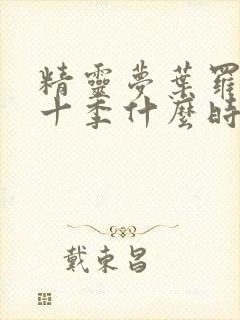 精靈夢葉羅
十季什麼時
戴東昌